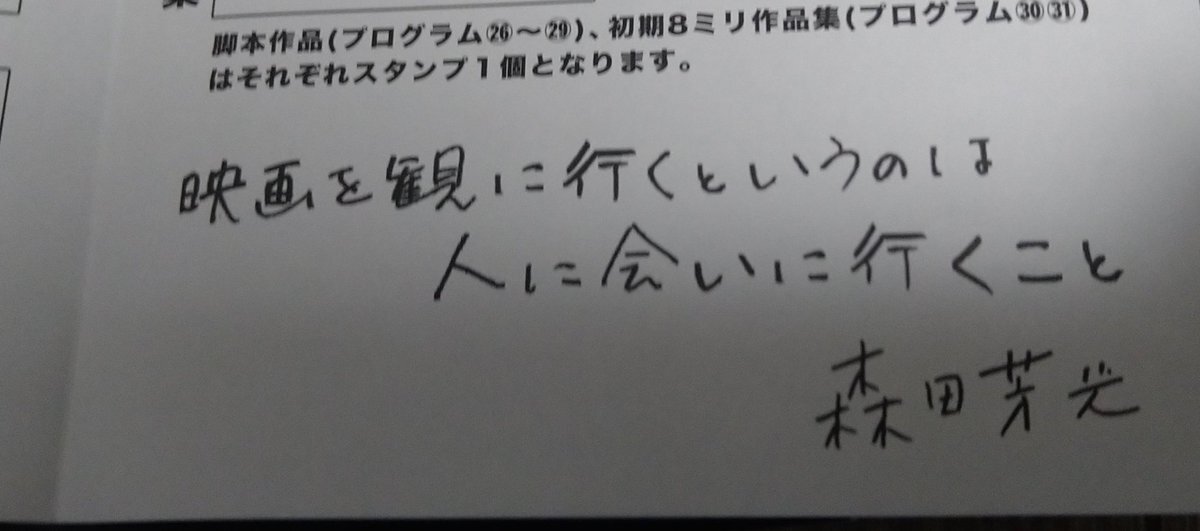 集
脚本作品(プログラム㉖～㉙)、初期8ミリ作品集(プログラム㉚㉛)
はそれぞれスタンプ1個となります。
映画を観に行くというのは
人に会いに行くこと
森田芳光